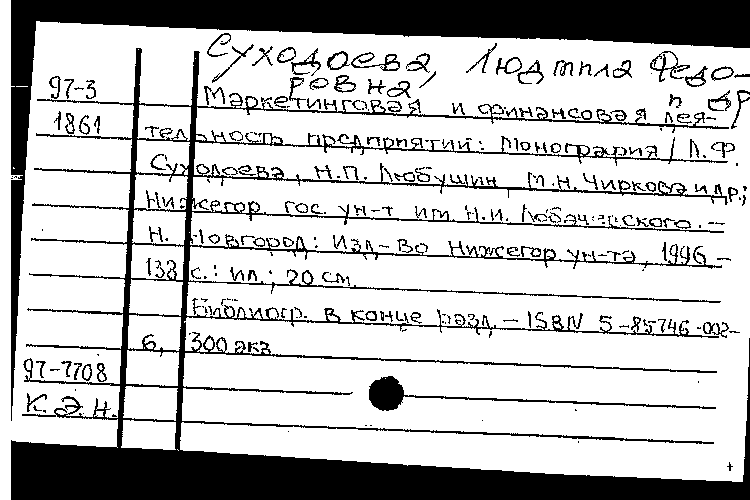 Суходоева, Людмила Федо-
ровна и др
97-3
Маркетинговая и финансовая дея-
1861
тельность предприятий: Монография / Л.Ф.
Суходоева, Н.П. Любушин, М.Н. Чиркова и др.;
Нижегор. гос. ун-т им. Н.И. Лобачевского. —
Н. Новгород: Изд-во Нижегор. ун-та, 1996 —
138 с.: ил.; 20 см.
Библиогр. в конце разд. — ISBN 5-85746-002-
6, 300 экз
97-7708
К.Э.Н.